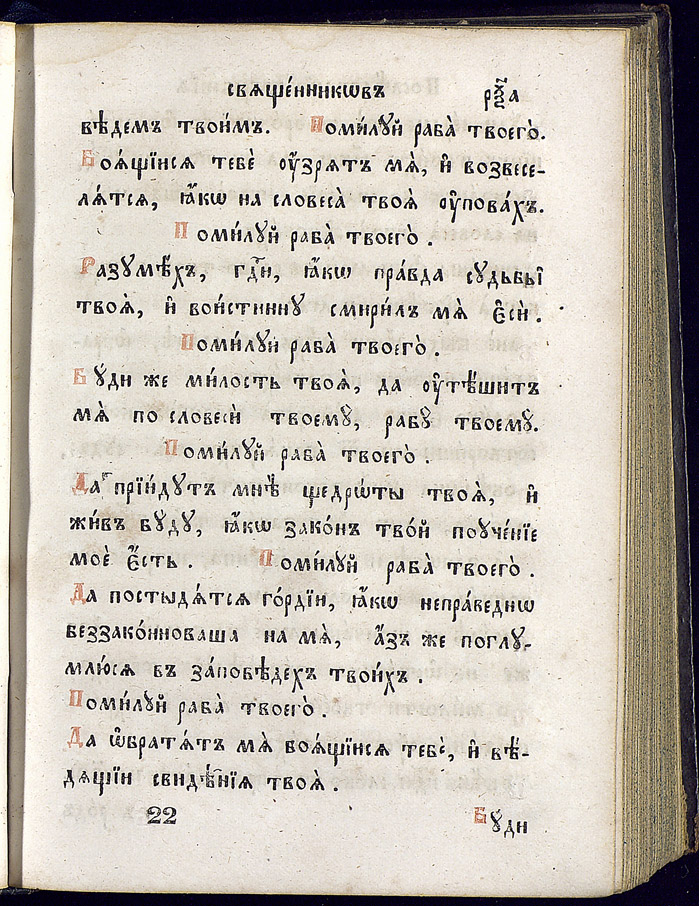 свѧще́нникѡвъ рѯ҃а
вѣ́демъ твои̑мъ. Поми́лꙋй раба̀ твоего̀.
Боѧ́щїисѧ тебѐ ᲂу҆́зрѧтъ мѧ̀, и҆ возвесе-
лѧ́тсѧ, ꙗ҆́кѡ на словеса̀ твоѧ̑ ᲂу҆пова́хъ.
Поми́лꙋй раба̀ твоего̀.
Разꙋмѣ́хъ, гдⷭ҇и, ꙗ҆́кѡ пра́вда сꙋдьбы̑
твоѧ̑, и҆ вои́стиннꙋ смири́лъ мѧ̀ є҆сѝ.
Поми́лꙋй раба̀ твоего̀.
Бꙋ́ди же ми́лость твоѧ̀, да ᲂу҆тѣ́шитъ
мѧ̀ по словесѝ твоемꙋ̀, рабꙋ̀ твоемꙋ̀.
Поми́лꙋй раба̀ твоего̀.
Да прїи́дꙋтъ мнѣ̀ щедрѡ́ты твоѧ̑, и҆
жи́въ бꙋ́дꙋ, ꙗ҆́кѡ зако́нъ тво́й поꙋче́нїе
моѐ є҆́сть. Поми́лꙋй раба̀ твоего̀.
Да постыдѧ́тсѧ го́рдїи, ꙗ҆́кѡ непра́веднѡ
беззако́нноваша на мѧ̀, а҆́зъ же поглꙋ-
млю́сѧ въ за́повѣдехъ твои́хъ.
Поми́лꙋй раба̀ твоего̀.
Да ѡ҆братѧ́тъ мѧ̀ боѧ́щїисѧ тебѐ, и҆ вѣ́-
дѧщїи свидѣ́нїѧ твоѧ̑.
22 Бꙋди